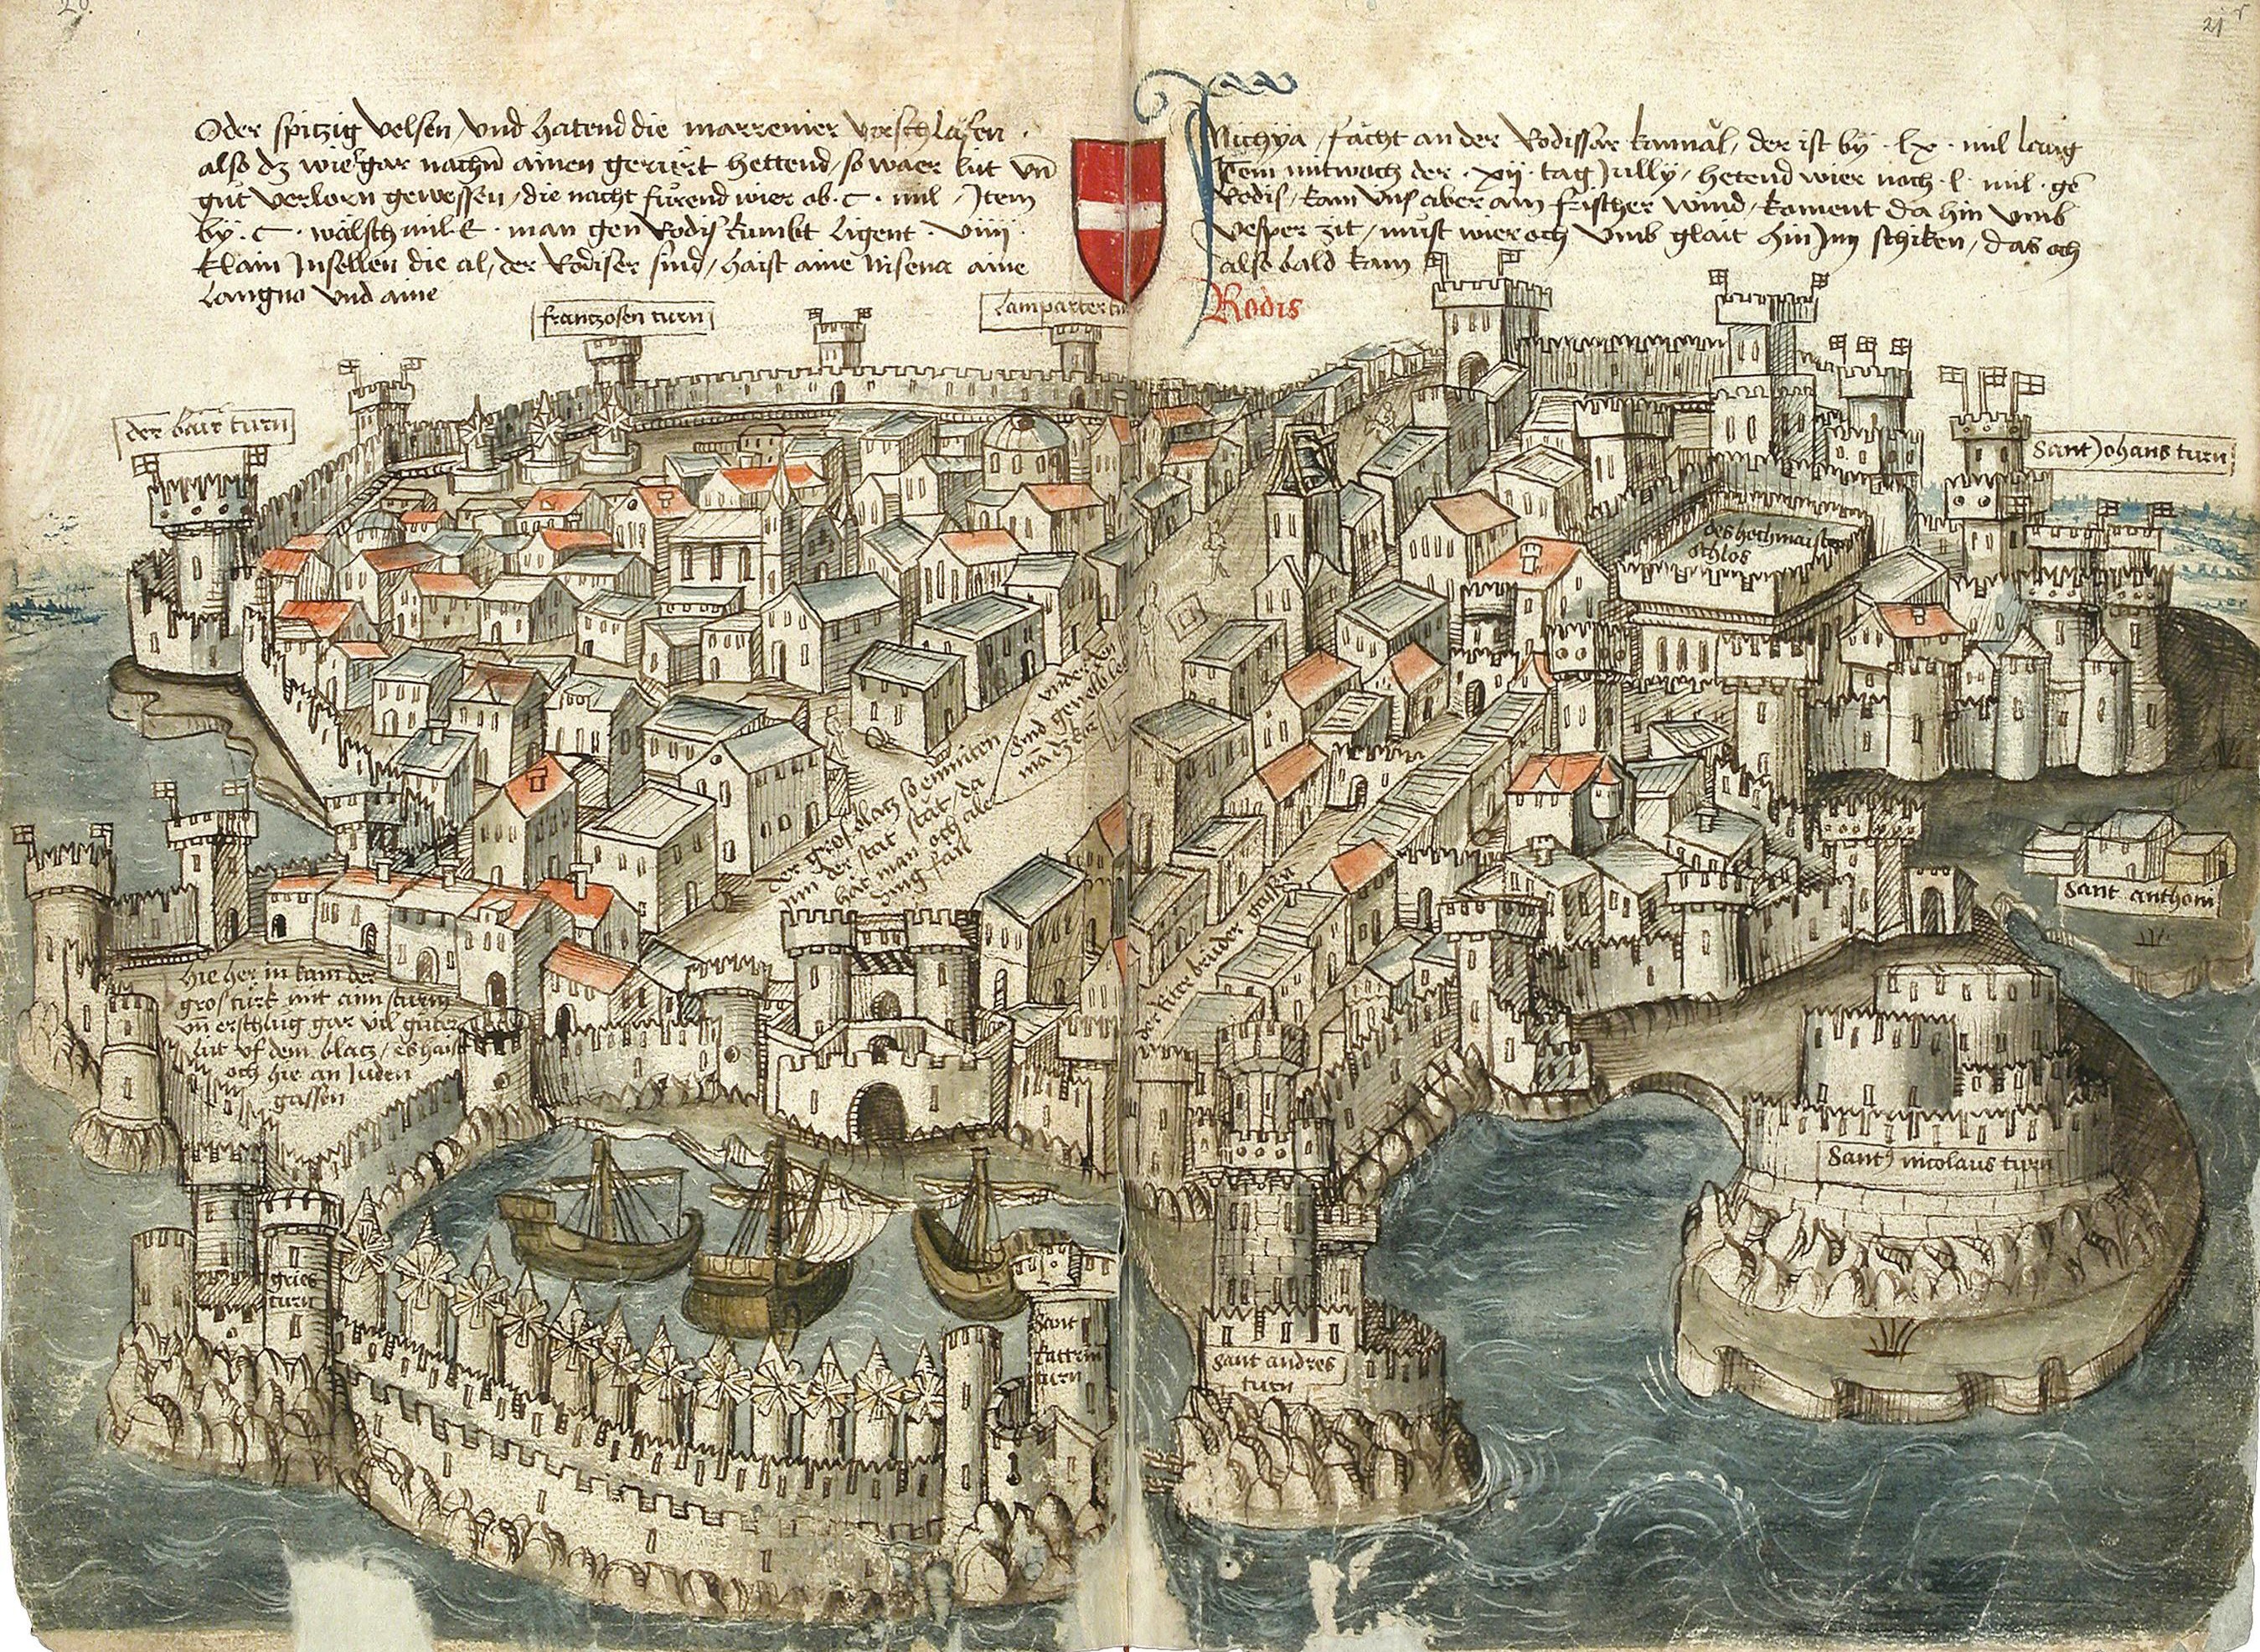 20.
21 r
Oder spitzig velsen / und hatend die marrenier verschlaffen.
also dz wie gar nachn ainen gerürt hettend / so waer lüt vn
gut verlorn gewessen / die nacht fürend wier ob. C. mil / Item
by. C. wälsch mil E. man gen Rodis kumbt ligent. viiij.
klain Insellen die al / der Rodiser sind / haist aine nisena aine
Languo vnd aine
Nichya / facht an der Rodissar kannal / der ist by. lx. mil lang
Item mitwoch der. xij. tag Jully / hetend wier noch. l. mil. ge
Rodis / kam vns aber ain frischer wind / koment da hin vmb
vesper zit / must wier och vmb glait hin Inn schiken / das och
also bald kam
Rodis
frantzosen turn
Lamparter turn
der bair turn
Sant Johans turn
des hochmaisters
schlos
vnder den
sind gewelb
der gros blatz so enmitten
inn der stat stat / da
hat man och ale
ding fail
der Riter brüder gassen
Sant anthoni
hie her in kam der
gros türk mit ainn sturm
vn erschlug gar vil guter
lüt vf dem blatz / es haist
och hie an Juden
gassen
Sant nicolaus turn
gries
turn
Sant
kattrin
turn
Sant andres
turn